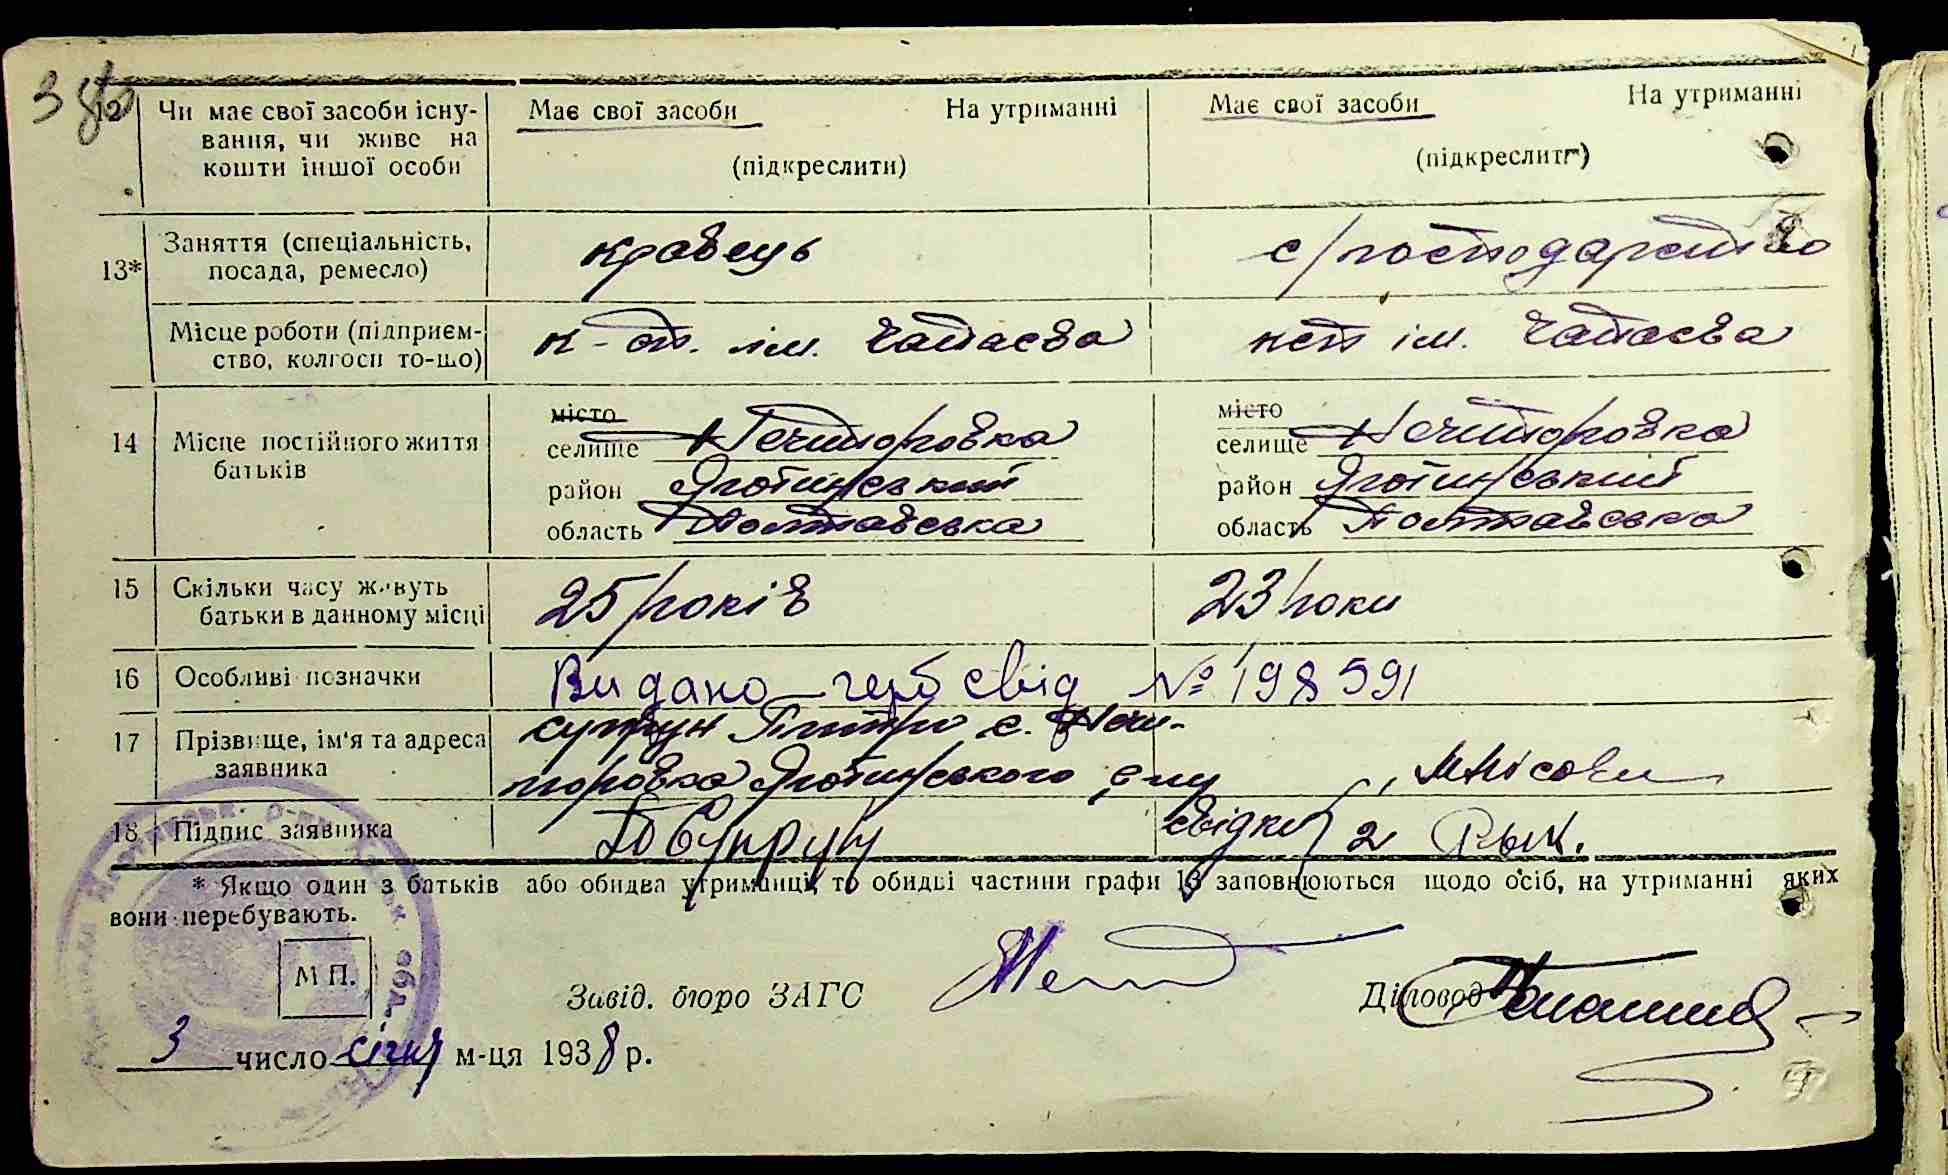 38
12 Чи має свої засоби існу- Має свої засоби На утриманні Має свої засоби На утриманні
вання, чи живе на
кошти іншої особи (підкреслити) (підкреслити)
13* Заняття (спеціальність, кравець с/господарство
посада, ремесло)
Місце роботи (підприєм- к-оп. ім. Чапаєва ксп ім. Чапаєва
ство, колгосп то-що)
місто місто
14 Місце постійного життя селище Нечипоровка селище Нечипоровка
батьків район Яготинський район Яготинський
область Полтавська область Полтавська
15 Скільки часу живуть 25 років 23 роки
батьки в данному місці
16 Особливі позначки Видано герб свід № 198591
17 Прізвище, ім'я та адреса Супрун Питро с. Нечи-
заявника поровка Яготинського р-ну
18 Підпис заявника Супрун свідки 2
* Якщо один з батьків або обидва утриманці, то обидві частини графи 13 заповнюються щодо осіб, на утриманні яких
вони перебувають.
М П.
Завід. бюро ЗАГС Діловод
3 число січня м-ця 1938 р.